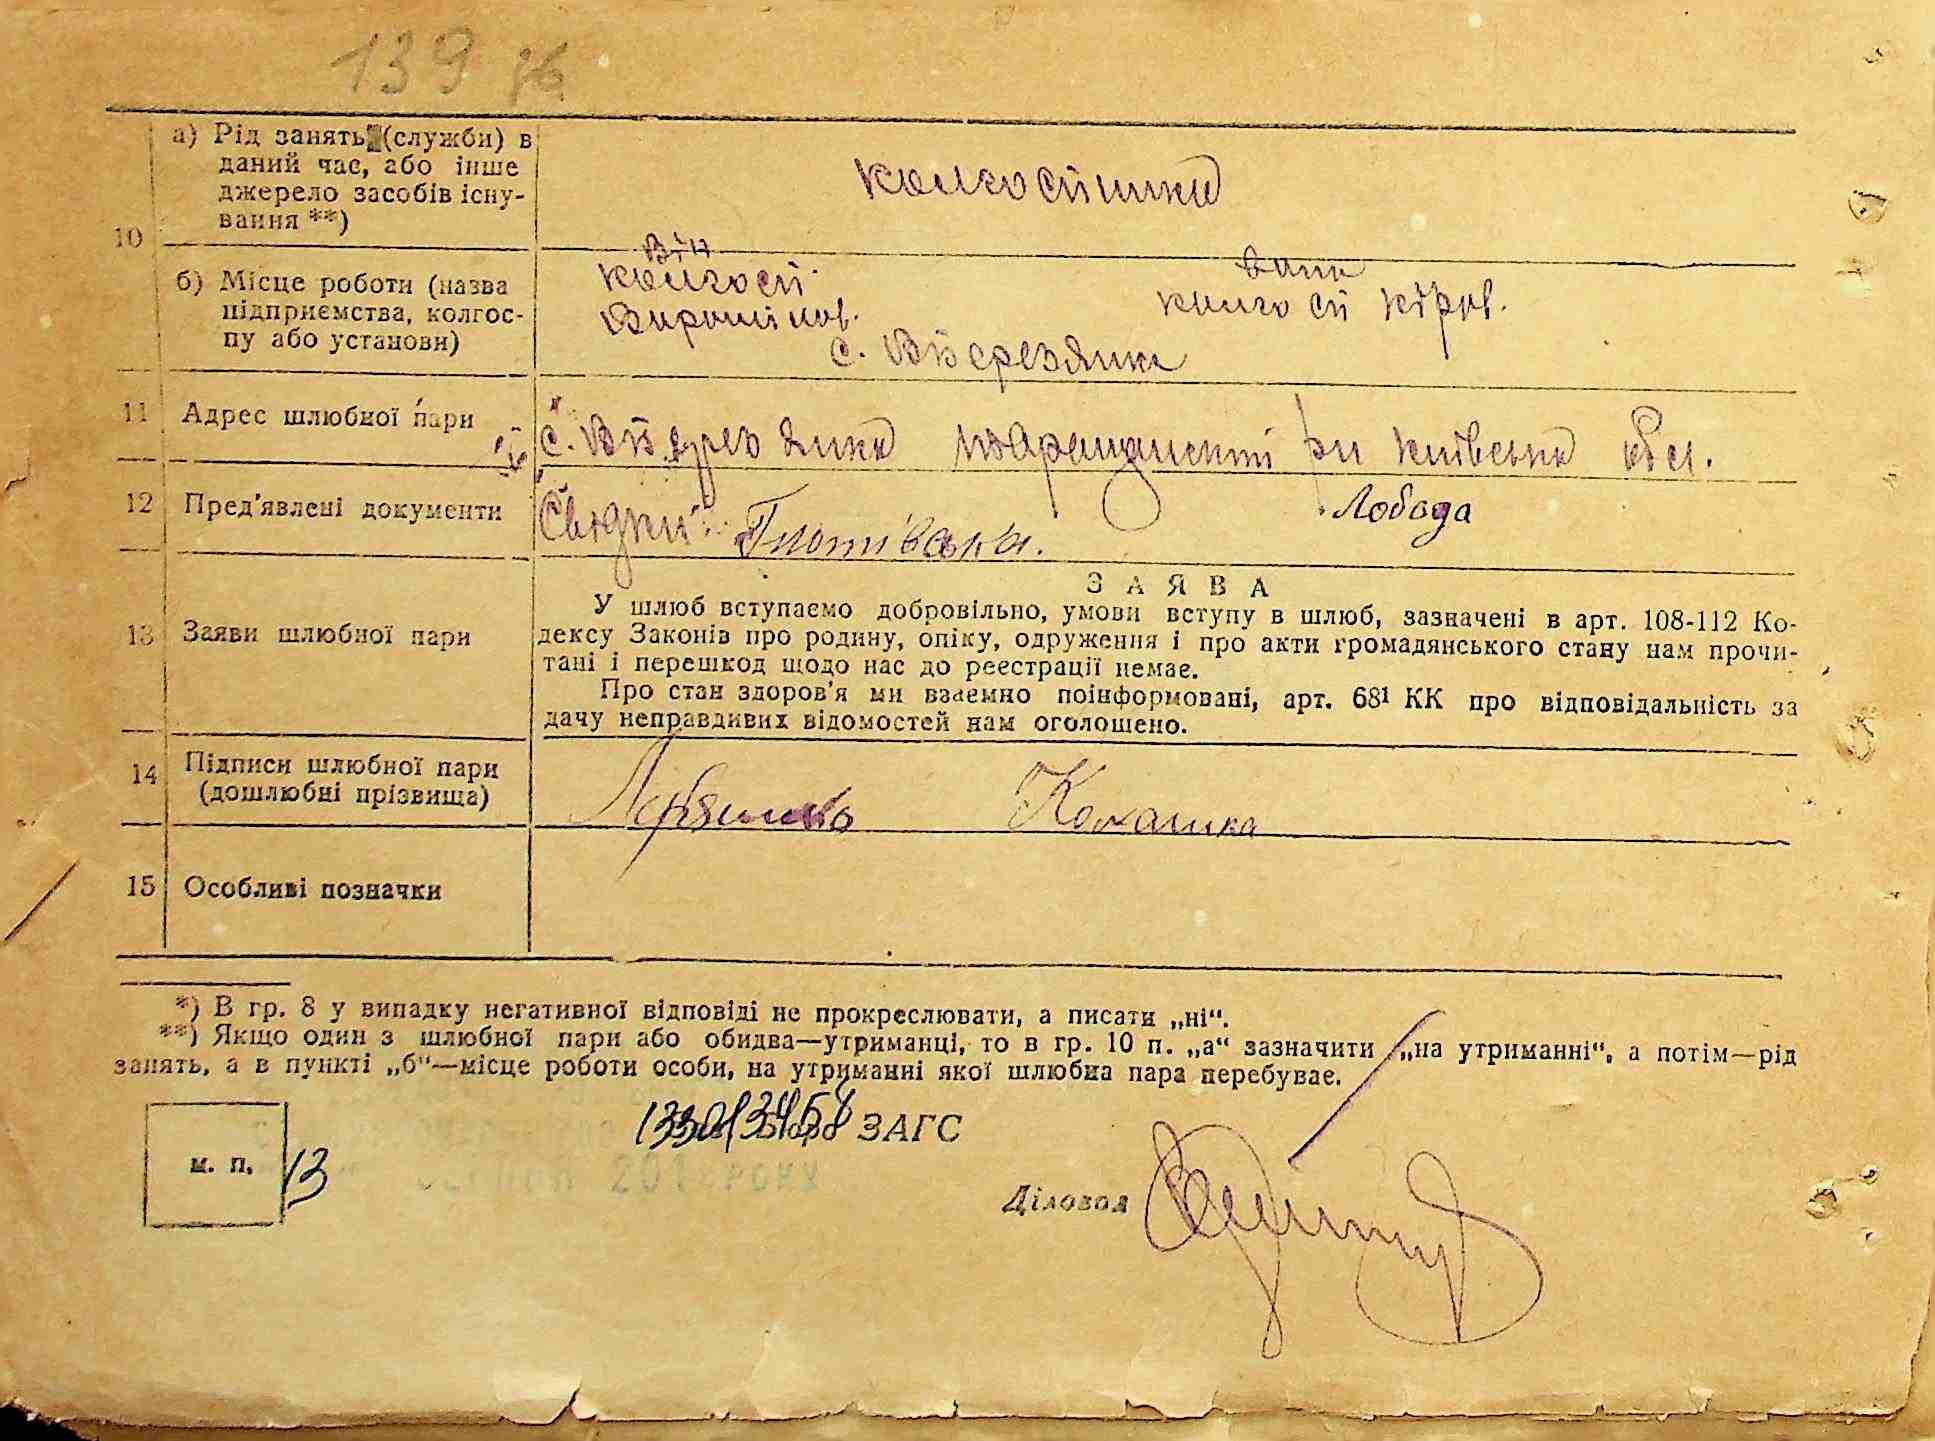 139 зв
а) Рід занять (служби) в
даний час, або інше
джерело засобів існу-
вання **)
колгоспники
10
б) Місце роботи (назва
підприємства, колгос-
пу або установи)
Він
колгосп
Ворошілов.
Вона
колгосп Кіров.
с. Березянка
11 Адрес шлюбної пари
с. Березянка Таращанський р-н Київська обл.
12 Пред'явлені документи
Свідки: Лобода
13 Заяви шлюбної пари
ЗАЯВА
У шлюб вступаємо добровільно, умови вступу в шлюб, зазначені в арт. 108-112 Ко-
дексу Законів про родину, опіку, одруження і про акти громадянського стану нам прочи-
тані і перешкод щодо нас до реєстрації немає.
Про стан здоров'я ми взаємно поінформовані, арт. 68¹ КК про відповідальність за
дачу неправдивих відомостей нам оголошено.
14 Підписи шлюбної пари
(дошлюбні прізвища)
15 Особливі позначки
*) В гр. 8 у випадку негативної відповіді не прокреслювати, а писати „ні“.
**) Якщо один з шлюбної пари або обидва—утриманці, то в гр. 10 п. „а“ зазначити „на утриманні“, а потім—рід
занять, а в пункті „б“—місце роботи особи, на утриманні якої шлюбна пара перебуває.
ЗАГС
м. п.
13
Діловод